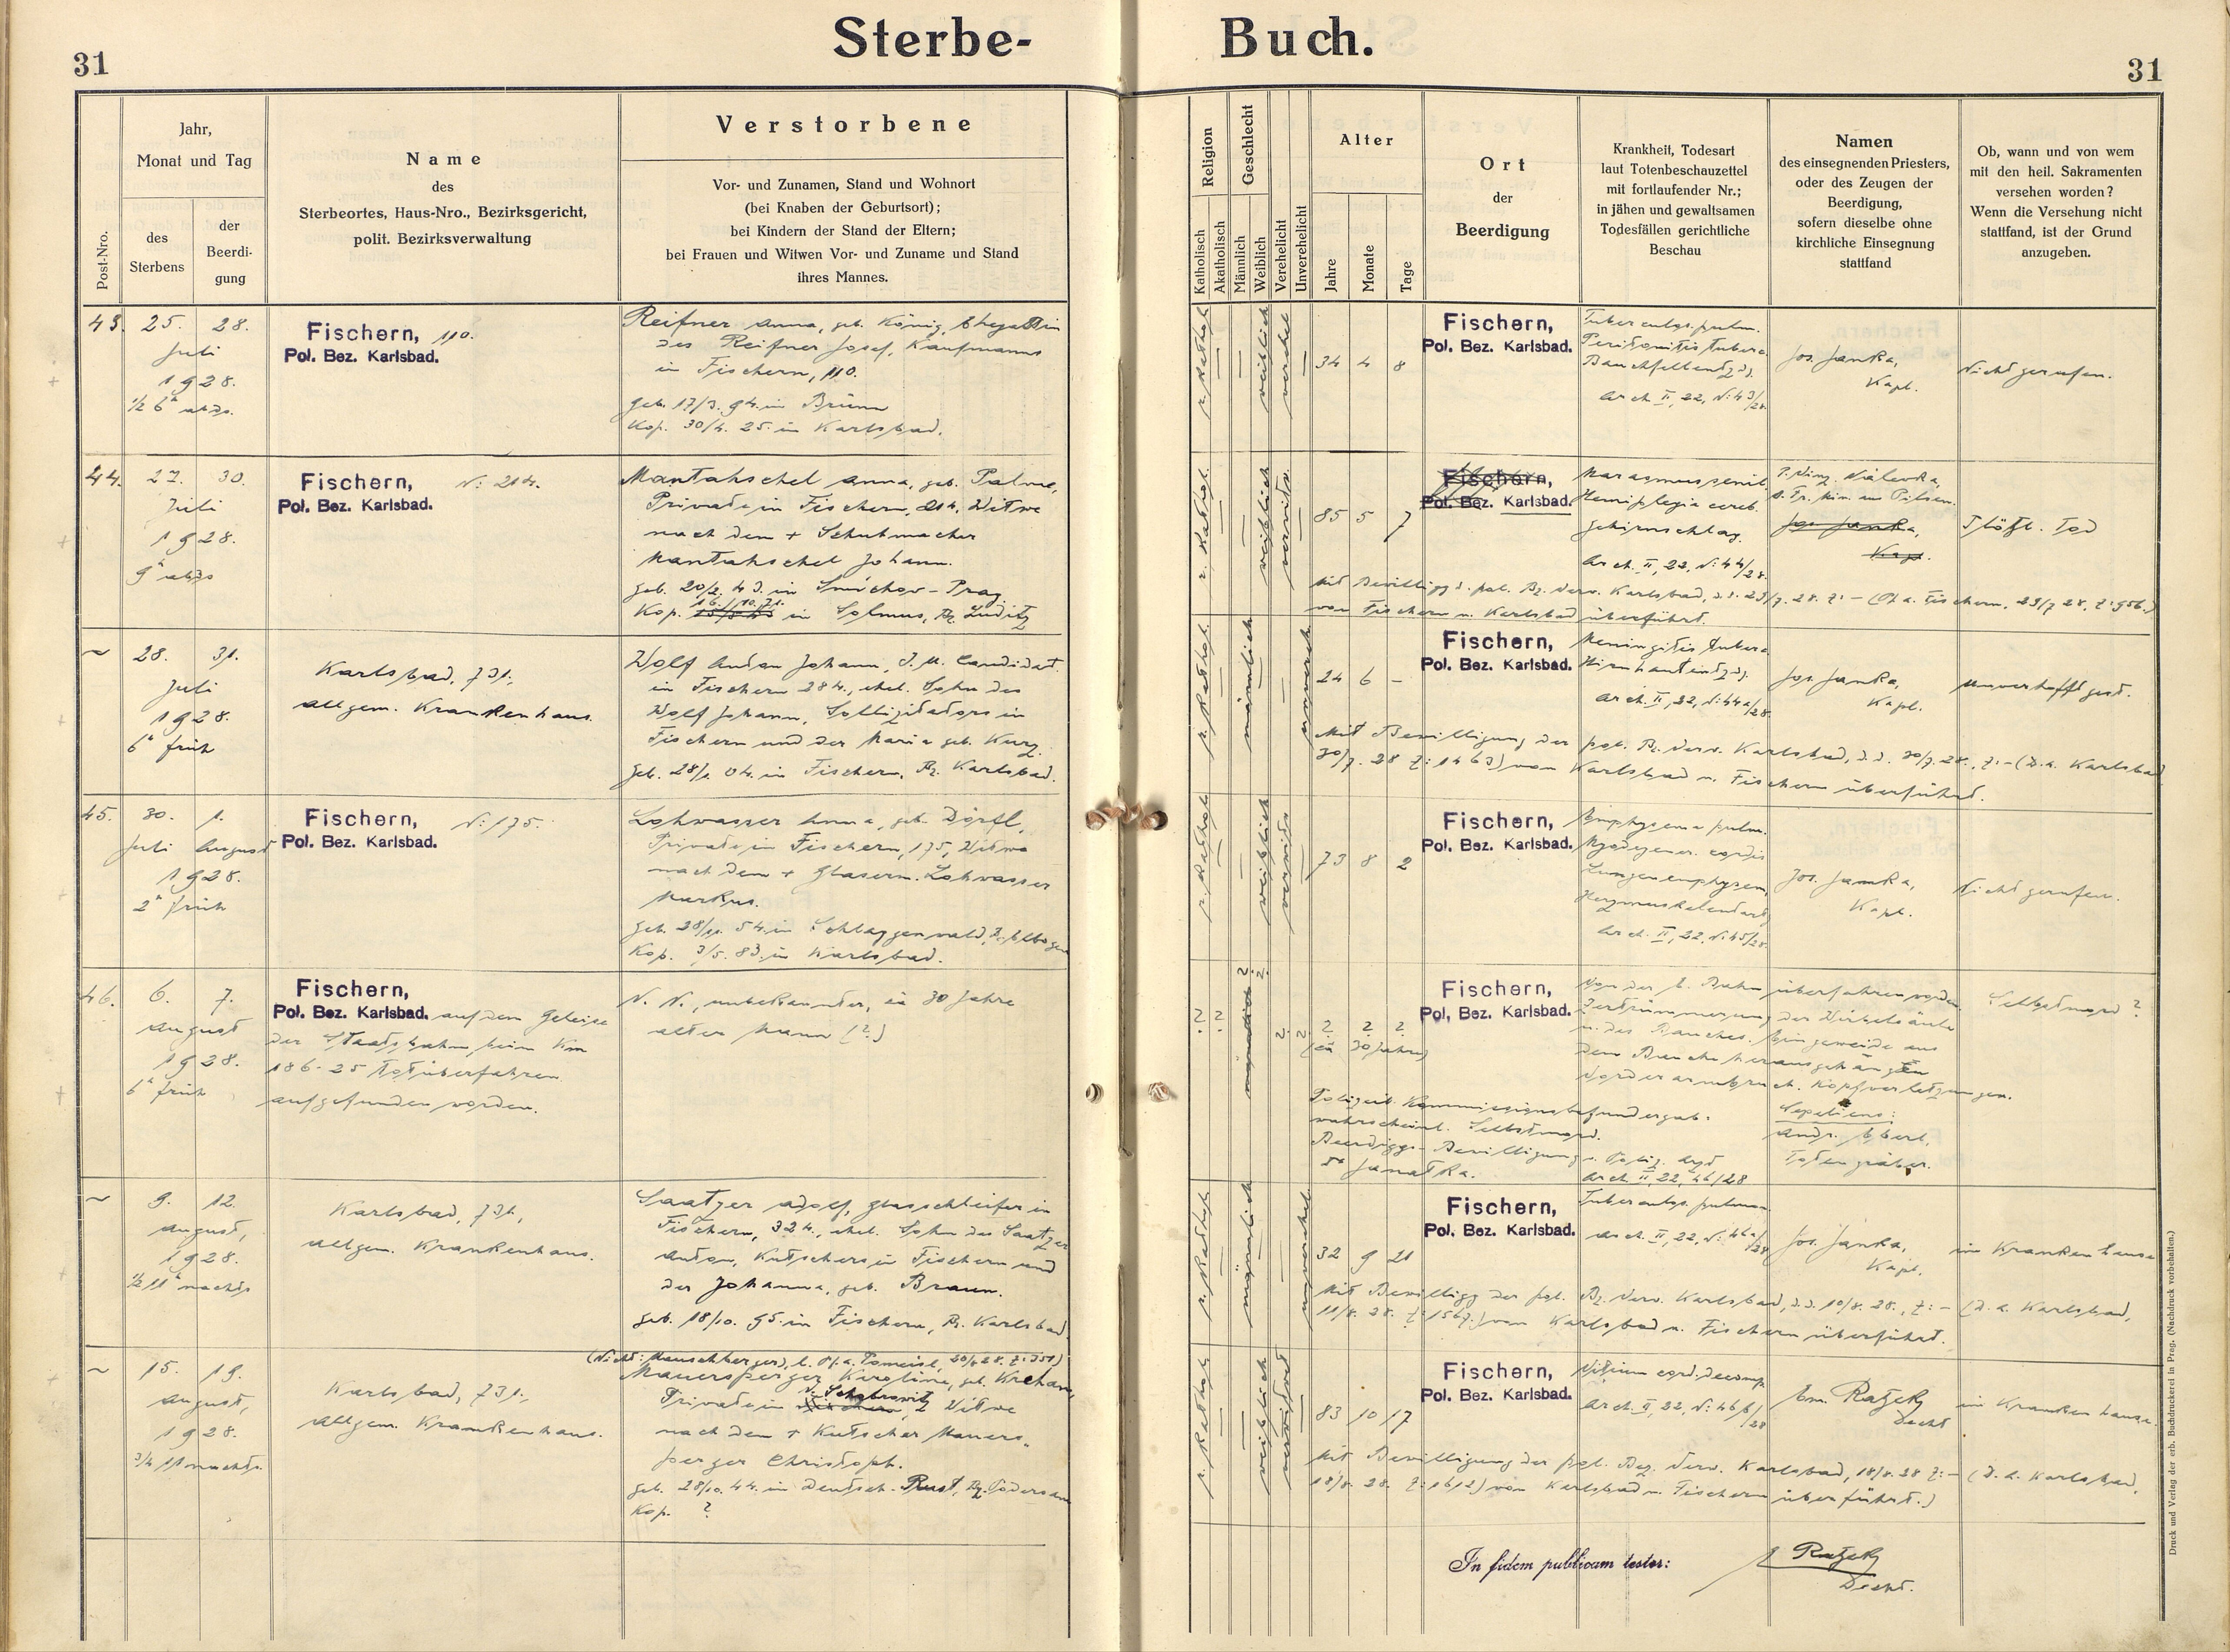 31
Sterbe-
Buch.
31
Post-Nro.
Jahr,
Monat und Tag
des
Sterbens
der
Beerdi-
gung
Name
des
Sterbeortes, Haus-Nro., Bezirksgericht,
polit. Bezirksverwaltung
Verstorbene
Vor- und Zunamen, Stand und Wohnort
(bei Knaben der Geburtsort);
bei Kindern der Stand der Eltern;
bei Frauen und Witwen Vor- und Zuname und Stand
ihres Mannes.
Religion
Katholisch
Akatholisch
Geschlecht
Männlich
Weiblich
Verehelicht
Unverehelicht
Alter
Jahre
Monate
Tage
Ort
der
Beerdigung
Krankheit, Todesart
laut Totenbeschauzettel
mit fortlaufender Nr.;
in jähen und gewaltsamen
Todesfällen gerichtliche
Beschau
Namen
des einsegnenden Priesters,
oder des Zeugen der
Beerdigung,
sofern dieselbe ohne
kirchliche Einsegnung
stattfand
Ob, wann und von wem
mit den heil. Sakramenten
versehen worden?
Wenn die Versehung nicht
stattfand, ist der Grund
anzugeben.
43. 25. 28.
Juli
1928.
½ 6ʰ abds.
Fischern, 110.
Pol. Bez. Karlsbad.
Reifner Anna, geb. König, Ehegattin
des Reifner Josef, Kaufmanns
in Fischern, 110.
geb. 17/3. 94. in Brünn
Kop. 30/4. 25. in Karlsbad.
r. kathol.
weiblich
verehel.
34 4 8
Fischern,
Pol. Bez. Karlsbad.
Tuberculos. pulm.
Peritonitis tuberc.
Bauchfellentzdg.
Arch. II, 22, N: 43/28.
Jos. Janka,
Kapl.
Nicht gerufen.
44. 27. 30.
Juli
1928.
9ʰ abds
Fischern, N: 214.
Pol. Bez. Karlsbad.
Mantahschel Anna, geb. Palme,
Private in Fischern, 214, Witwe
nach dem + Schuhmacher
Mantahschel Johann.
geb. 20/2. 43. in Smichov - Prag.
16./10. 71.
Kop. in Solmus, Bz. Luditz
r. kathol.
weiblich
verwitw.
85 5 7
Fischern,
Pol. Bez. Karlsbad.
Marasmus senil.
Hemiplegia cereb.
Gehirnschlag.
Arch. II, 22, N: 44/28.
Jos. Janka,
Kap.
Plötzl. Tod
Mit Bewilligg d. pol. Bz. Verw. Karlsbad, d.d. 29/7. 28. Z: - (Fischern, 29/7 28, Z: 956.)
von Fischern n. Karlsbad überführt.
~ 28. 31.
Juli
1928.
6ʰ früh
Karlsbad, 731.,
allgem. Krankenhaus.
Wolf Anton Johann, J. U. Candidat
in Fischern 284., ehel. Sohn des
Wolf Johann, Sollizitators in
Fischern und der Maria geb. Kurz.
geb. 28/1. 04. in Fischern, Bz. Karlsbad.
r. kathol.
männlich
unverehel.
24 6 -
Fischern,
Pol. Bez. Karlsbad.
Meningitis tuberc.
Hirnhautentzdg.
Arch. II, 22, N: 44a/28.
Jos. Janka,
Kapl.
Unverhofft gest.
Mit Bewilligung der pol. Bz. Verw. Karlsbad, d.d. 30/7. 28., Z: - (D.a. Karlsbad
30/7. 28 Z: 1463) von Karlsbad n. Fischern überführt.
45. 30. 1.
Juli August
1928.
2ʰ früh
Fischern, N: 175.
Pol. Bez. Karlsbad.
Lohwasser Anna, geb. Dörfl,
Private in Fischern, 175, Witwe
nach dem + Glaserm. Lohwasser
Markus.
geb. 28/11. 54. in Schlaggenwald, Bz. Elbogen
Kop. 3/5. 83. in Karlsbad.
r. kathol.
weiblich
verwitw.
73 8 2
Fischern,
Pol. Bez. Karlsbad.
Emphysema pulm.
Myodegener. cordis
Lungenemphysem,
Herzmuskelentartg
Arch. II, 22, N: 45/28.
Jos. Janka,
Kapl.
Nicht gerufen.
46. 6. 7.
August
1928.
6ʰ früh
Fischern,
Pol. Bez. Karlsbad. auf dem Geleise
der Staatsbahn beim Km
186-25 tot überfahren
aufgefunden worden.
N. N., unbekannter, ca 30 Jahre
alter Mann (?)
? ? ? ? ? ? ? ? ?
(ca 30 Jahre)
Fischern,
Pol. Bez. Karlsbad.
Von der E. Bahn überfahren worden
Zertrümmerung der Wirbelsäule
u. des Bauches. Eingeweide aus
dem Bauche heraushängen
Vorderarmbruch. Kopfverletzungen.
Selbstmord?
Polizeil. Kommissionsbefund ergab:
wahrscheinl. Selbstmord.
Beerdiggs- Bewilligung v. Poliz. Arzt
Dr Janatka.
Arch II, 22, 46/28
Sepeliens:
Andr. Eberl,
Totengräber.
~ 9. 12.
August,
1928.
½ 11ʰ nachts
Karlsbad, 731.,
allgem. Krankenhaus.
Saatzer Adolf, Glasschleifer in
Fischern, 324., ehel. Sohn des Saatzer
Anton, Kutschers in Fischern und
der Johanna, geb. Braun.
geb. 18/10. 95. in Fischern, Bz. Karlsbad.
r. kathol.
männlich
unverehel.
32 9 21
Fischern,
Pol. Bez. Karlsbad.
Tuberculos. pulmon.
Arch. II, 22, N: 46a/28
Jos. Janka,
Kapl.
im Krankenhause
Mit Bewilligg der pol. Bz. Verw. Karlsbad, d.d. 10/8. 28., Z: - (D.a. Karlsbad,
11/8. 28. Z: 1567.) von Karlsbad n. Fischern überführt.
~ 15. 19.
August,
1928.
¾ 11 nachts.
Karlsbad, 731.,
allgem. Krankenhaus.
(Nicht: Mauschberger), l. Pf.a. Pomeisl, 20/8 28. Z: 351)
Mauersperger Karoline, geb. Krehan,
Private in Witwe
nach dem + Kutscher Mauers-
perger Christoph.
geb. 28/10. 44. in Deutsch-Rust, Bz. Podersam
Kop. ?
r. kathol.
weiblich
verwitwet
83 10 17
Fischern,
Pol. Bez. Karlsbad.
Vitium cord. decomp.
Arch. II, 22, N: 46b/28
Em. Ratzek
Decht
im Krankenhause.
Mit Bewilligung der pol. Bez. Verw. Karlsbad, 18/8. 28 Z: - (D.a. Karlsbad,
18/8. 28. Z: 1612) von Karlsbad n. Fischern überführt.)
In fidem publicam testor:
Ratzek
Decht.
Druck und Verlag der erb. Buchdruckerei in Prag. (Nachdruck vorbehalten.)